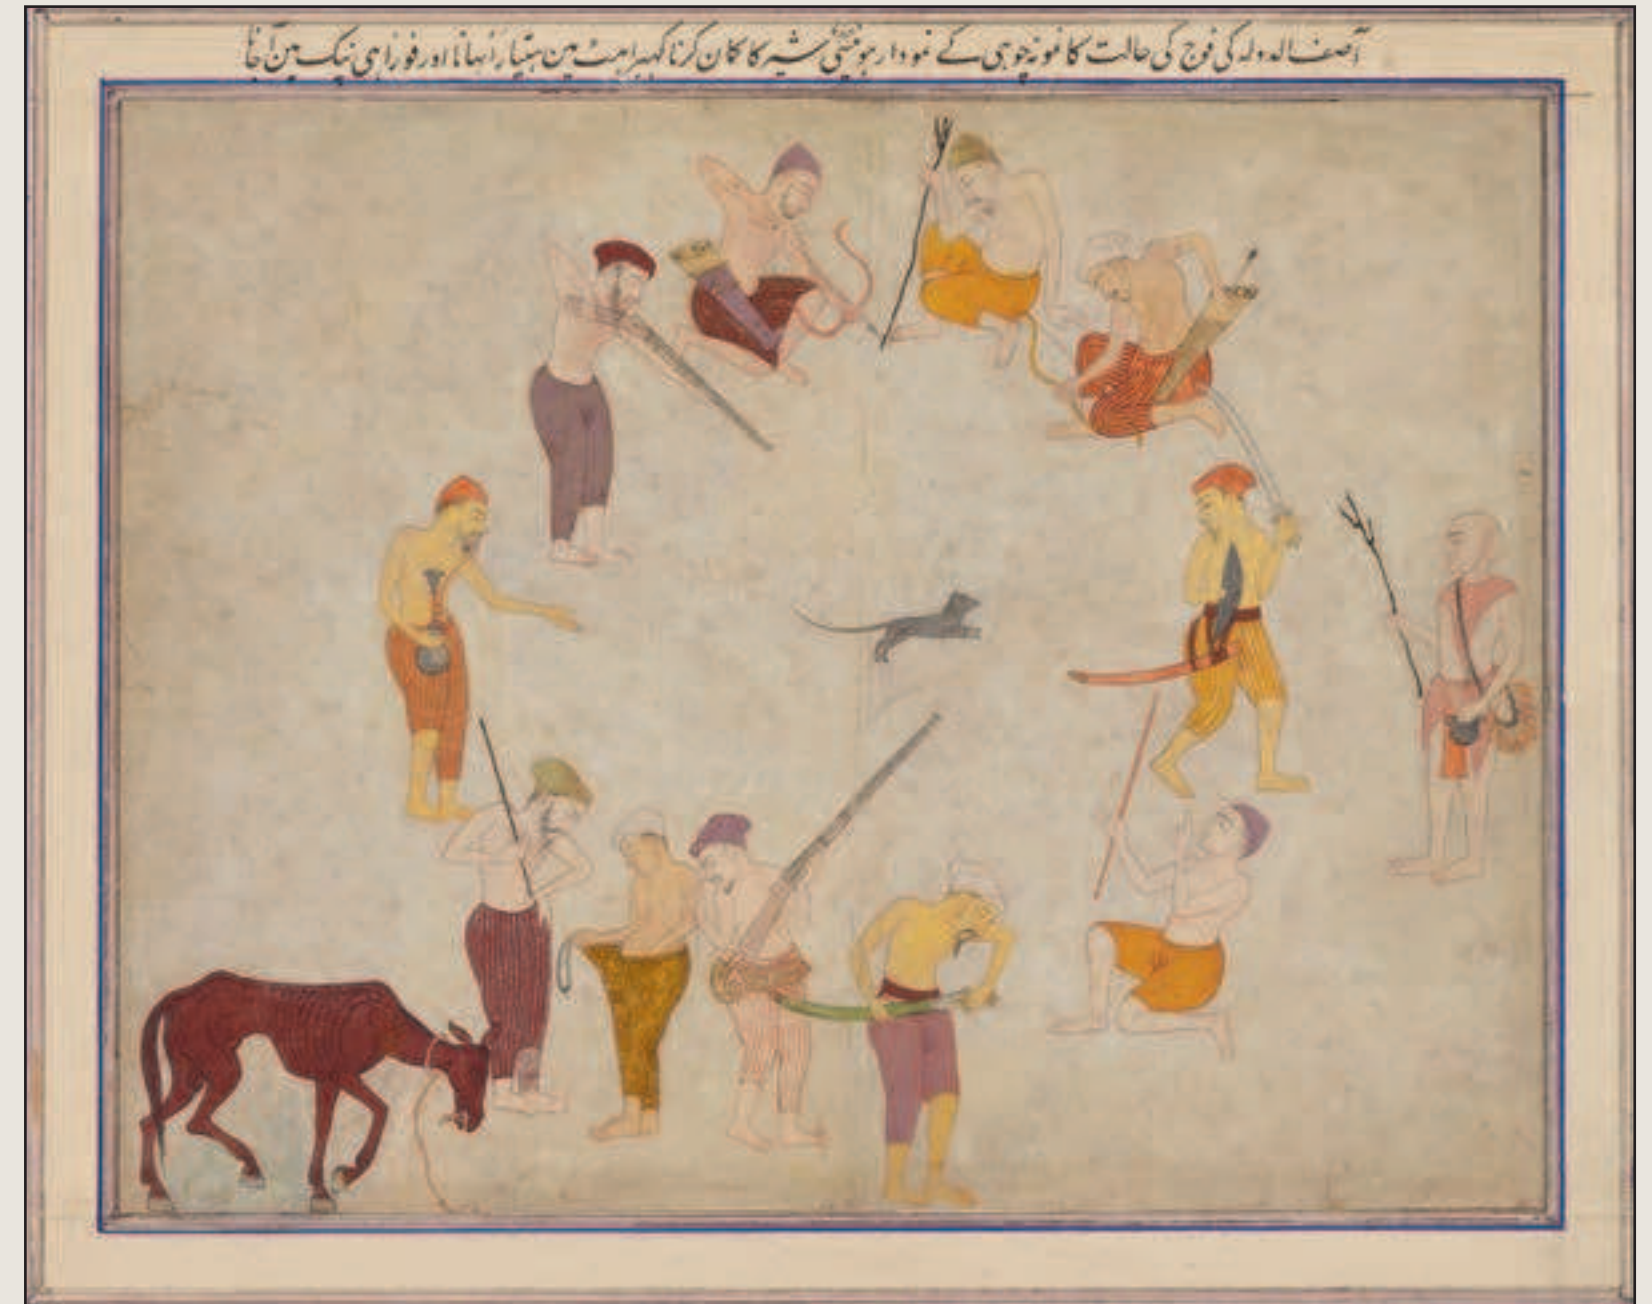 آصف الدولہ کی فوج کی حالت کا نمونہ چوہی کے نمودار ہونیسی شیر کا کمان کرنا کہبراہٹ مین ہتیار اٹہانا اور فوراً ہی مین